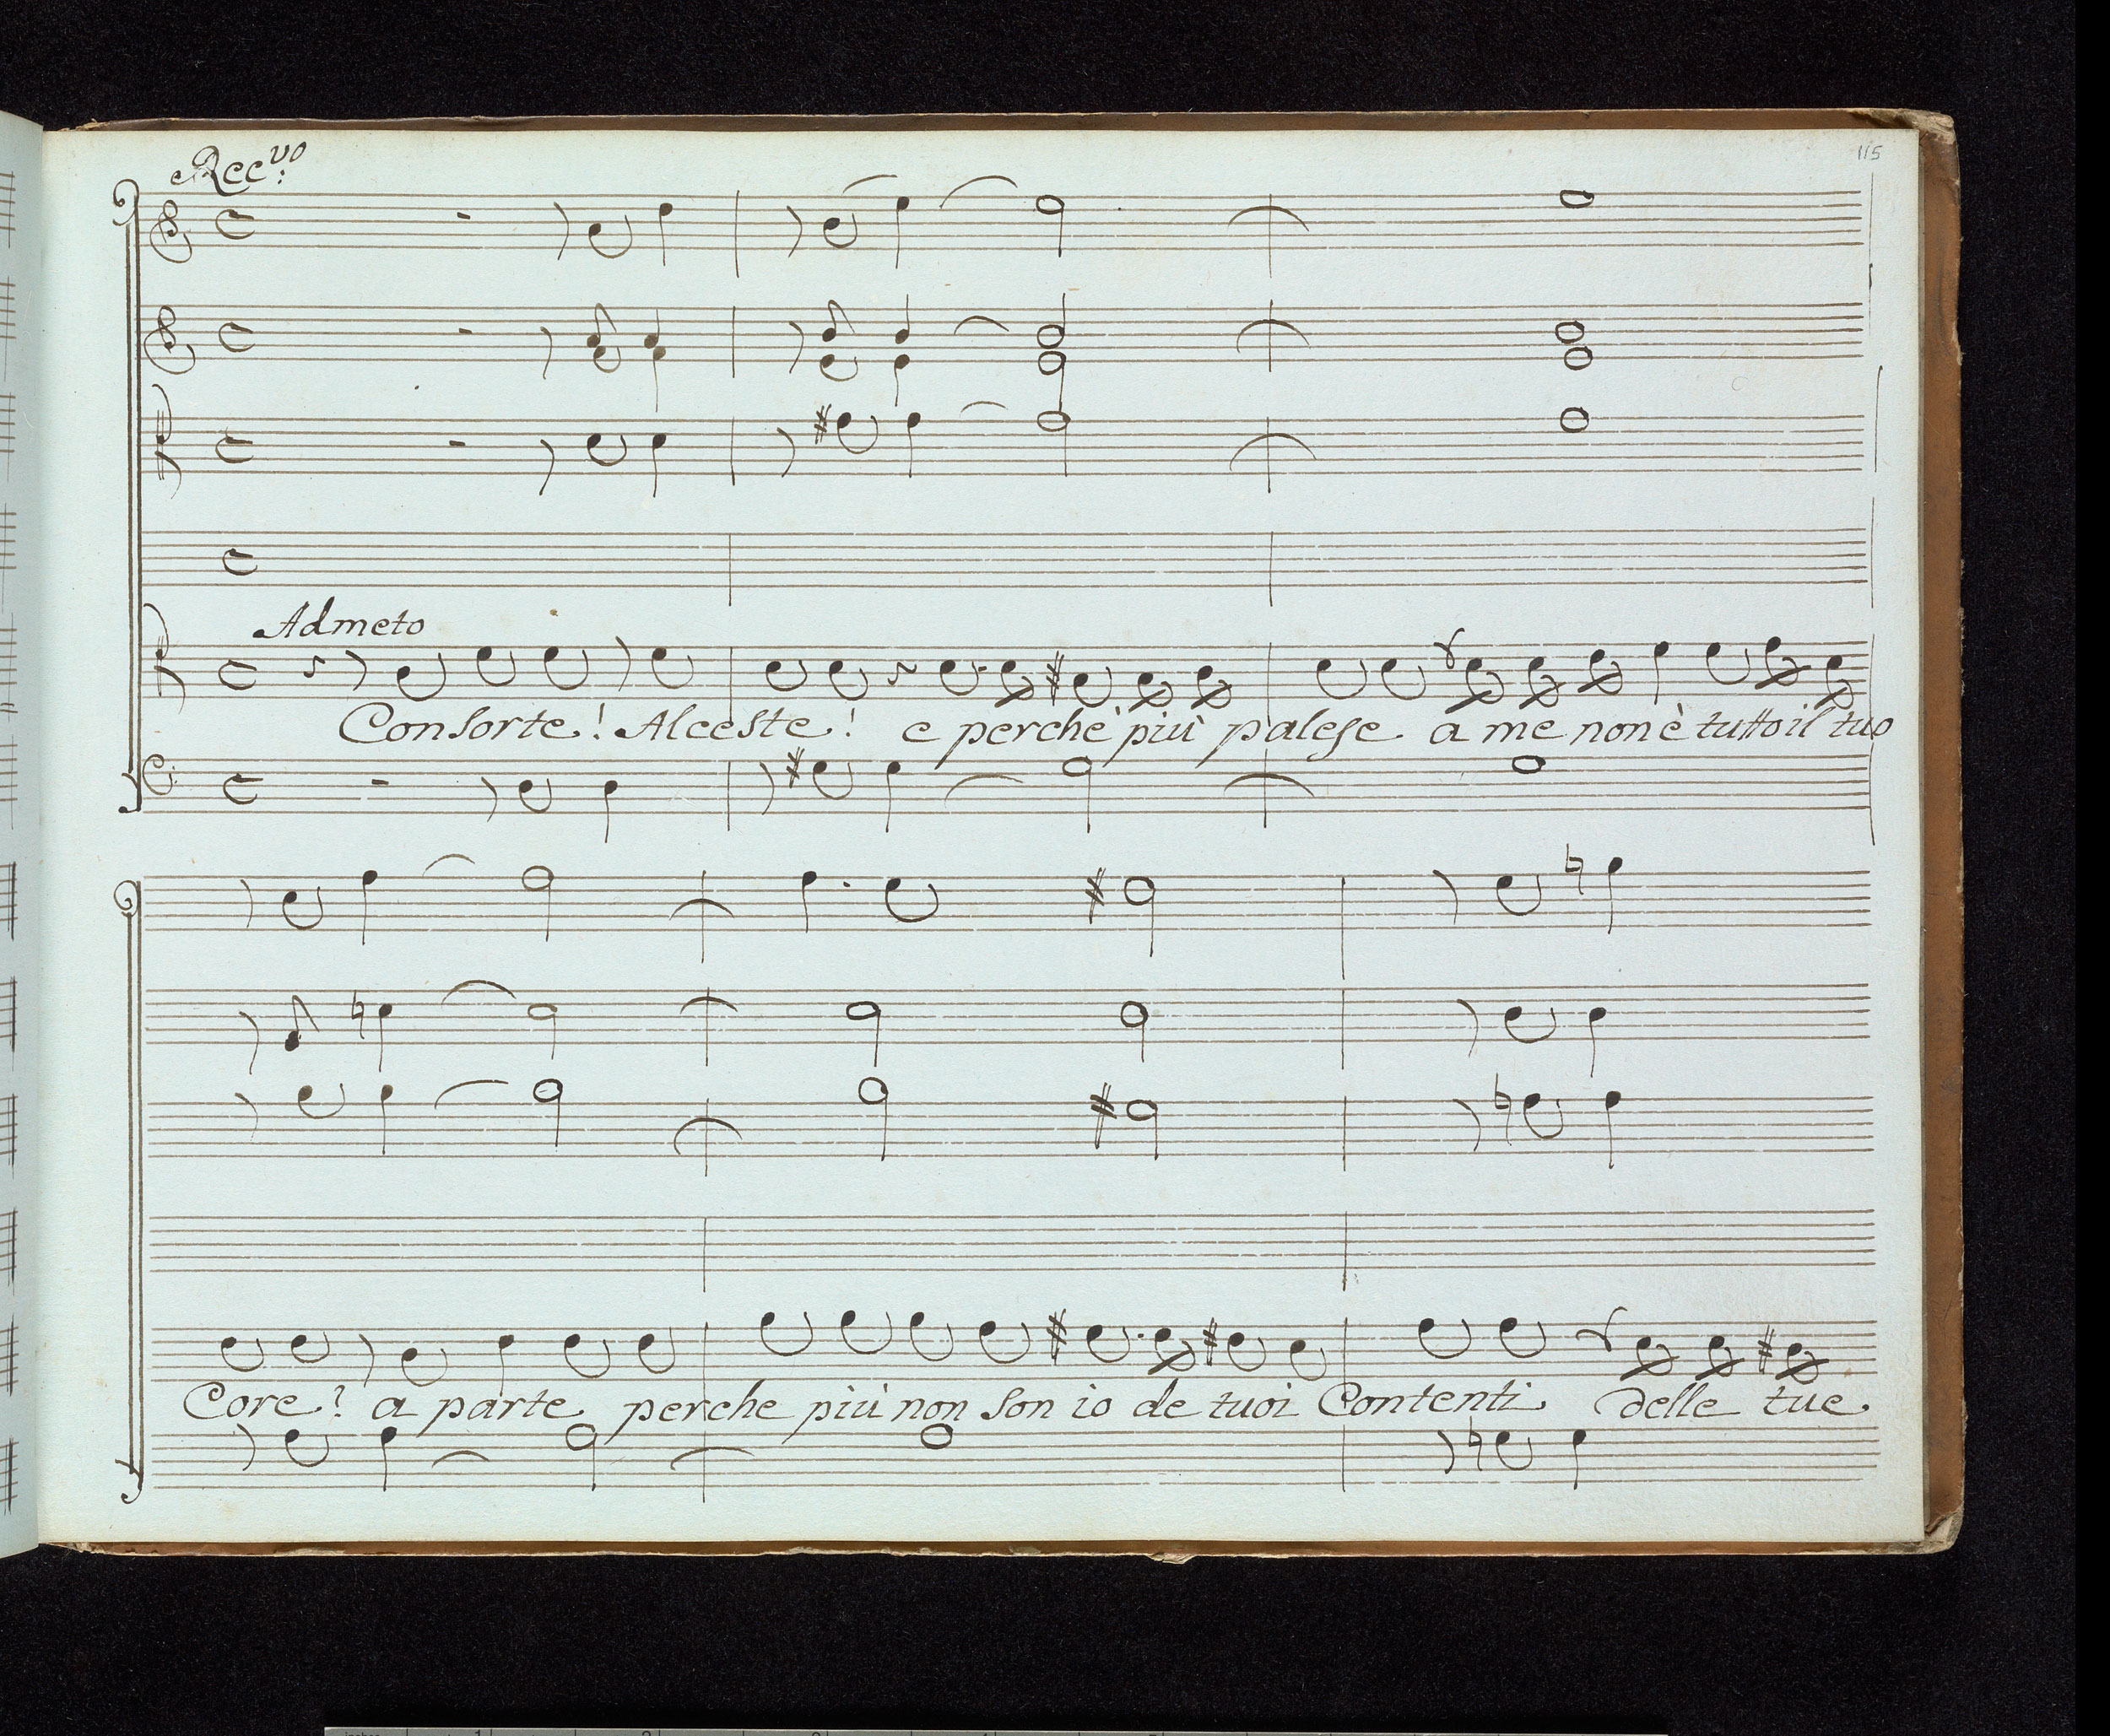 115
Rec:vo
Admeto
Consorte! Alceste! e perchè più palese a me non è tutto il tuo
Core? a parte perche più non son io de tuoi Contenti delle tue
inches 1 2 3 4 5